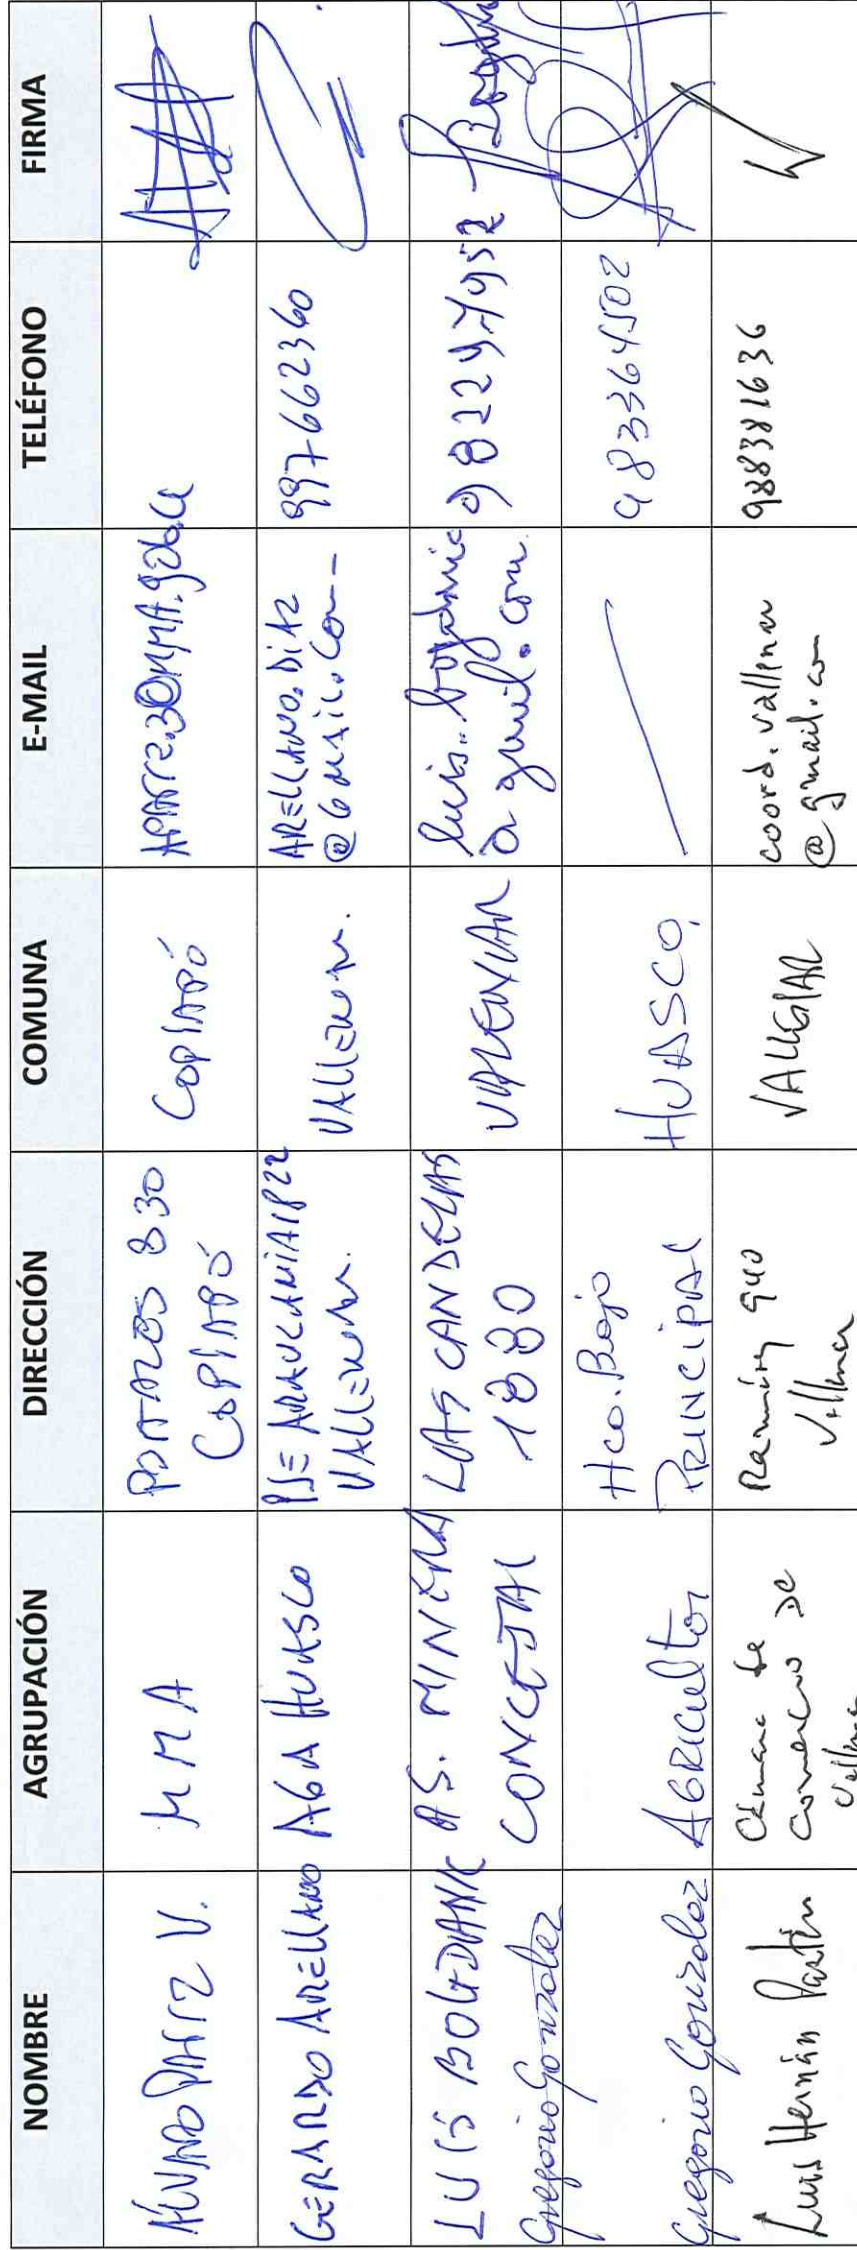 NOMBRE AGRUPACIÓN DIRECCIÓN COMUNA E-MAIL TELÉFONO FIRMA
MMA
PORTALES 830
COPIAPÓ
COPIAPÓ
GERARDO ARELLANO
AGA HUASCO
PSE ARAUCANIA 1822
VALLENAR.
VALLENAR.
ARELLANO.DIAZ
@GMAIL.COM-
997662360
LUIS
AS. MINERA
CONCEJAL
LAS CANDELAS
1880
VALLENAR
Gregorio Gonzalez
Gregorio Gonzalez
AGRICULTOR
Hco. Bajo
PRINCIPAL
HUASCO,
983364502
Luis Hernán
Cámara de
Comercio de
Ramírez 940
Vallenar
VALLENAR
coord.vallenar
@gmail.com
988381636